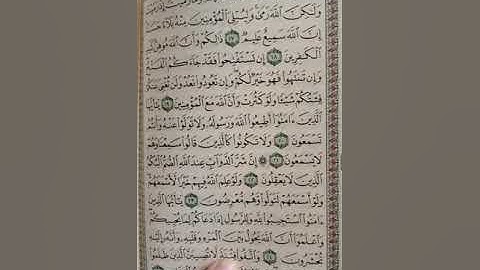 وَلَٰكِنَّ ٱللَّهَ رَمَىٰ وَلِيُبْلِيَ ٱلْمُؤْمِنِينَ مِنْهُ بَلَآءً
إِنَّ ٱللَّهَ سَمِيعٌ عَلِيمٌ ١٧ ذَٰلِكُمْ وَأَنَّ ٱللَّهَ مُوهِنُ كَيْدِ
ٱلْكَٰفِرِينَ ١٨ إِن تَسْتَفْتِحُوا۟ فَقَدْ جَآءَكُمُ ٱلْفَتْحُ
وَإِن تَنتَهُوا۟ فَهُوَ خَيْرٌ لَّكُمْ وَإِن تَعُودُوا۟ نَعُدْ وَلَن تُغْنِيَ عَنكُمْ
فِئَتُكُمْ شَيْـًٔا وَلَوْ كَثُرَتْ وَأَنَّ ٱللَّهَ مَعَ ٱلْمُؤْمِنِينَ ١٩ يَٰٓأَيُّهَا
ٱلَّذِينَ ءَامَنُوٓا۟ أَطِيعُوا۟ ٱللَّهَ وَرَسُولَهُۥ وَلَا تَوَلَّوْا۟ عَنْهُ وَأَنتُمْ
تَسْمَعُونَ ٢٠ وَلَا تَكُونُوا۟ كَٱلَّذِينَ قَالُوا۟ سَمِعْنَا وَهُمْ
لَا يَسْمَعُونَ ٢١ ۞ إِنَّ شَرَّ ٱلدَّوَآبِّ عِندَ ٱللَّهِ ٱلصُّمُّ ٱلْبُكْمُ
ٱلَّذِينَ لَا يَعْقِلُونَ ٢٢ وَلَوْ عَلِمَ ٱللَّهُ فِيهِمْ خَيْرًا لَّأَسْمَعَهُمْ
وَلَوْ أَسْمَعَهُمْ لَتَوَلَّوا۟ وَّهُم مُّعْرِضُونَ ٢٣ يَٰٓأَيُّهَا ٱلَّذِينَ
ءَامَنُوا۟ ٱسْتَجِيبُوا۟ لِلَّهِ وَلِلرَّسُولِ إِذَا دَعَاكُمْ لِمَا يُحْيِيكُمْ
وَٱعْلَمُوٓا۟ أَنَّ ٱللَّهَ يَحُولُ بَيْنَ ٱلْمَرْءِ وَقَلْبِهِۦ وَأَنَّهُۥٓ إِلَيْهِ
تُحْشَرُونَ ٢٤ وَٱتَّقُوا۟ فِتْنَةً لَّا تُصِيبَنَّ ٱلَّذِينَ ظَلَمُوا۟